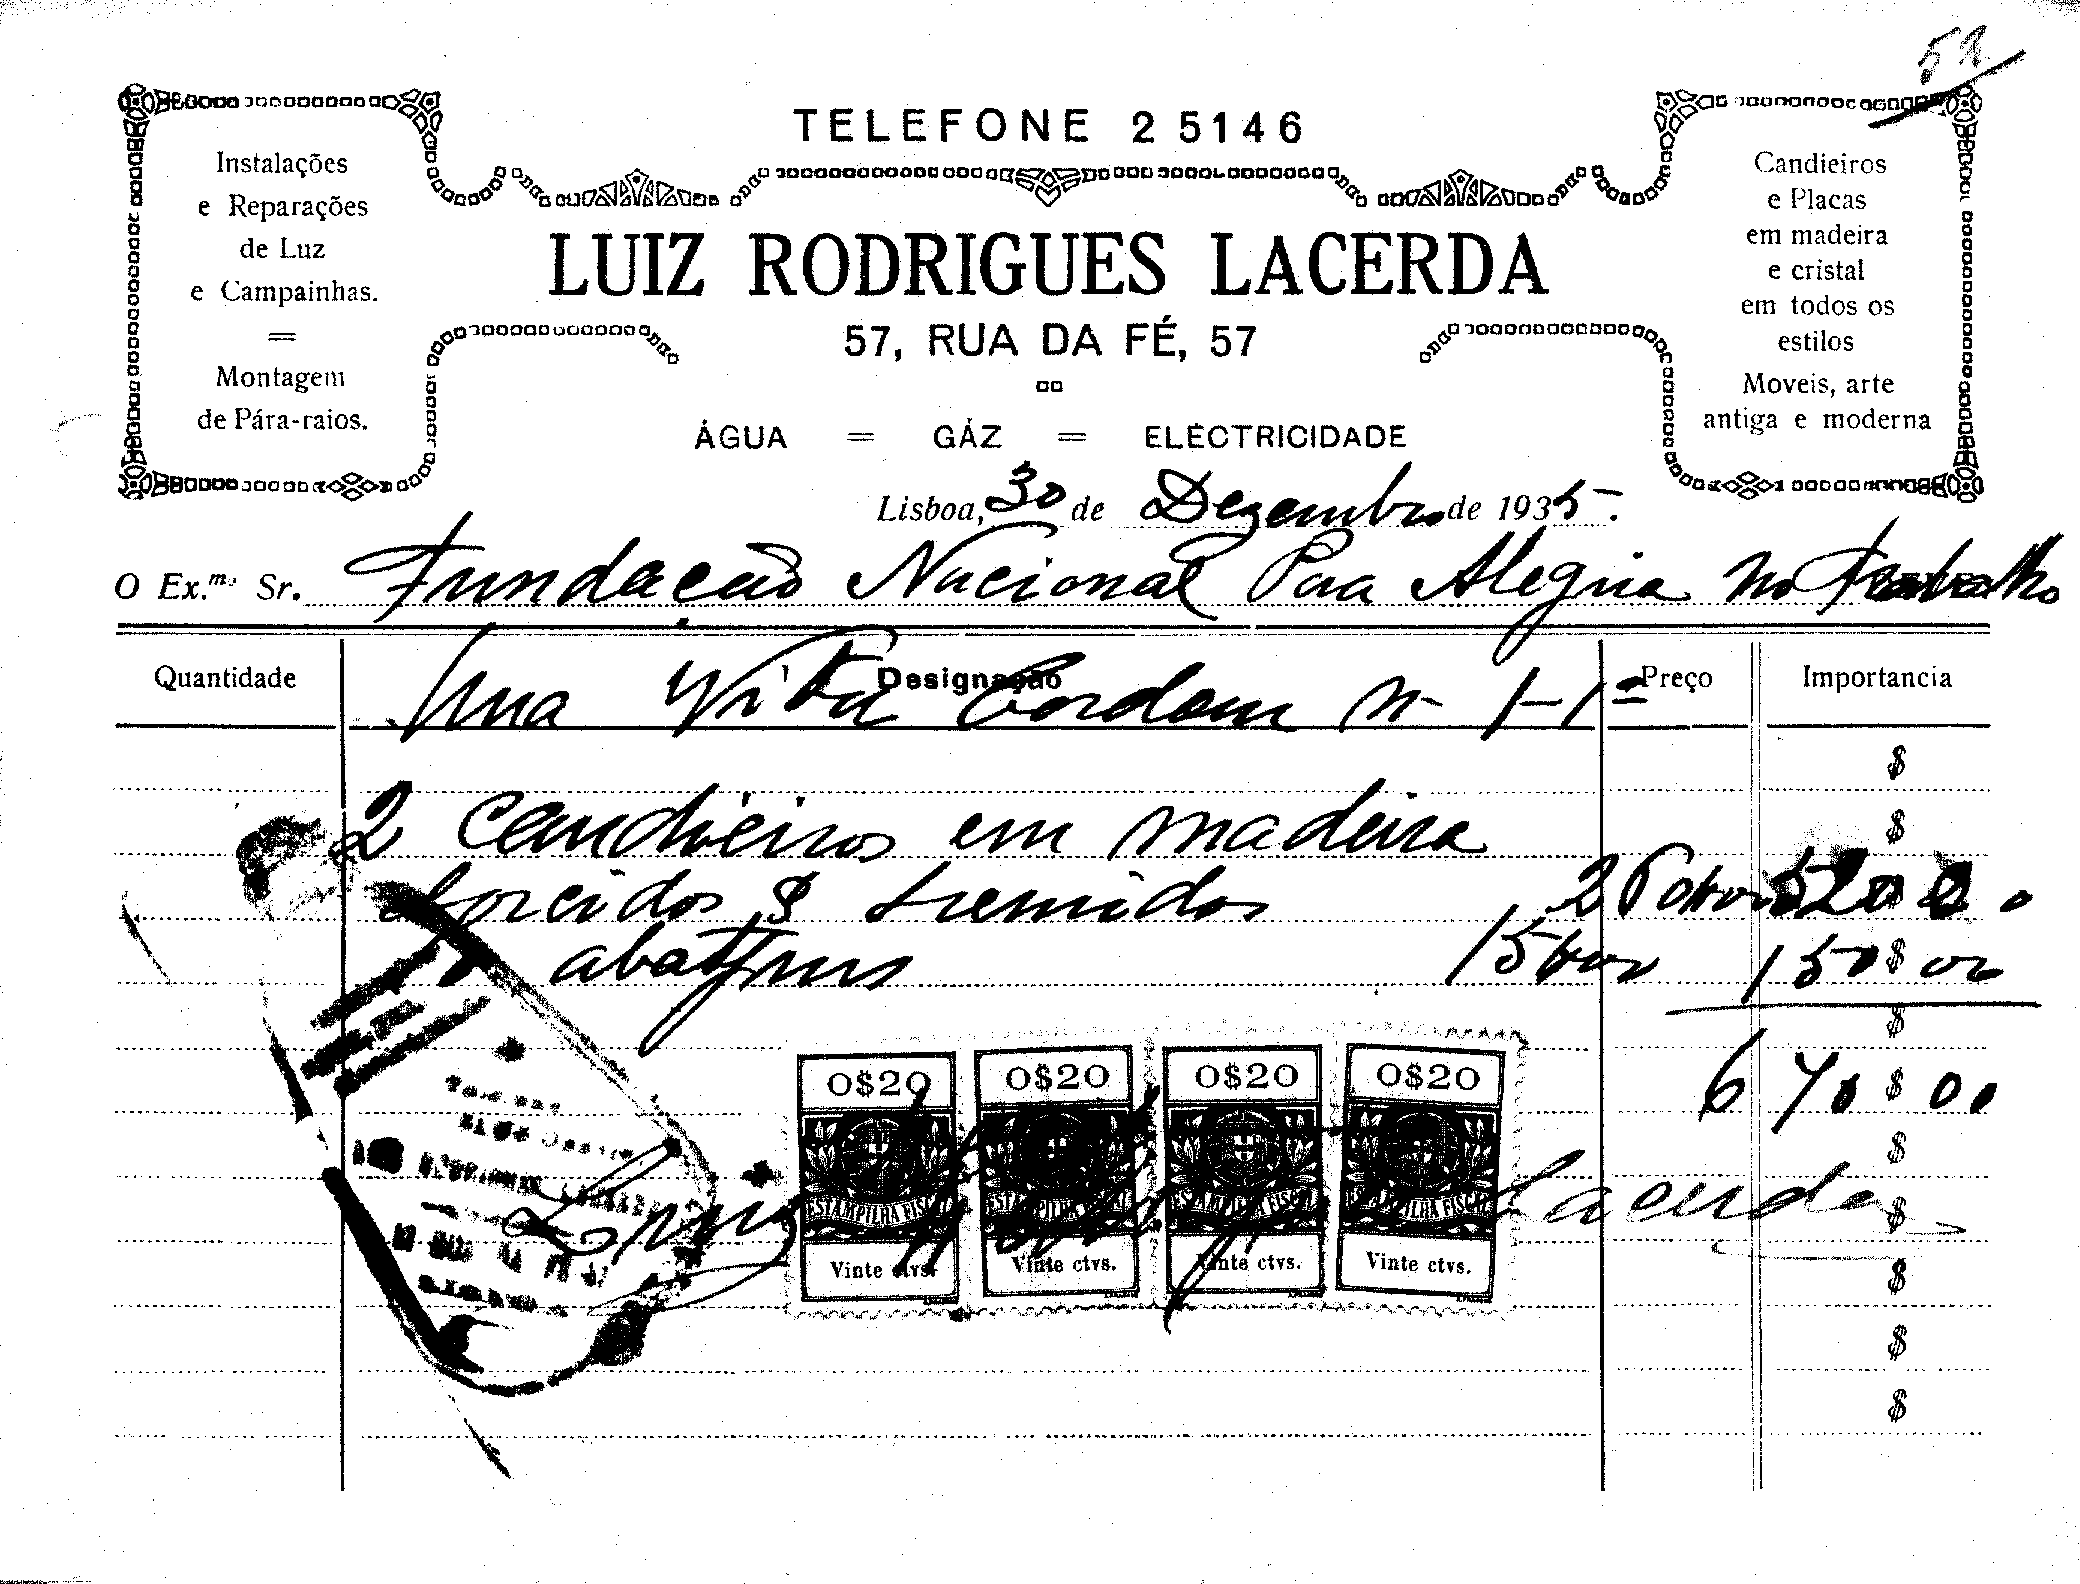 52
TELEFONE 2 5146
Instalações
e Reparações
de Luz
e Campainhas.
=
Montagem
de Pára-raios.
LUIZ RODRIGUES LACERDA
57, RUA DA FÉ, 57
ÁGUA = GÁZ = ELÉCTRICIDADE
Candieiros
e Placas
em madeira
e cristal
em todos os
estilos
Moveis, arte
antiga e moderna
Lisboa, 30 de Dezembro de 1935.
O Ex.mo Sr. Fundação Nacional Para Alegria no Trabalho
Rua Vitor Cordom n- 1-1º
Quantidade Designação Preço Importancia
$
2 Candieiros em madeira $
torcidos & tremidos 520$00
abatjurs 150$00
$
670$00
$
Luiz Lacerda $
$
$
$
O$20 O$20 O$20 O$20
ESTAMPILHA FISCAL ESTAMPILHA FISCAL ESTAMPILHA FISCAL ESTAMPILHA FISCAL
Vinte ctvs. Vinte ctvs. Vinte ctvs. Vinte ctvs.